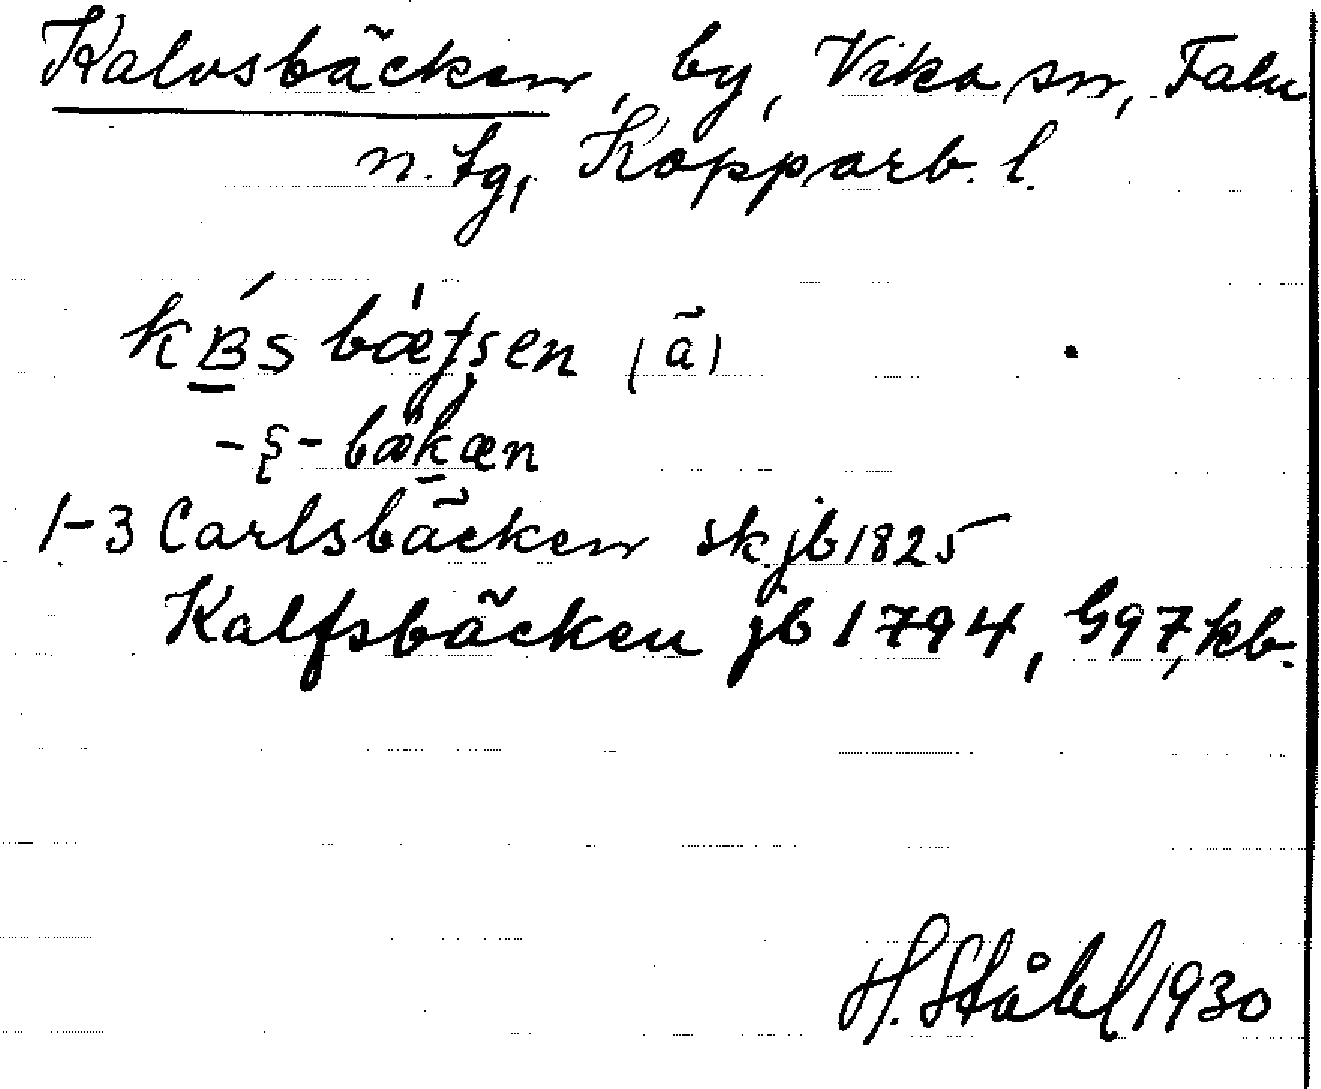 Kalvsbäcken, by, Vika sn, Falu
n. tg, Kopparb. l.
kʙ́s bæ̍tʂen (ä)
-ʂ- bækæn
1-3 Carlsbäcken skjb 1825
Kalfsbäcken jb 1794, G97, kb.
H. Ståhl 1930